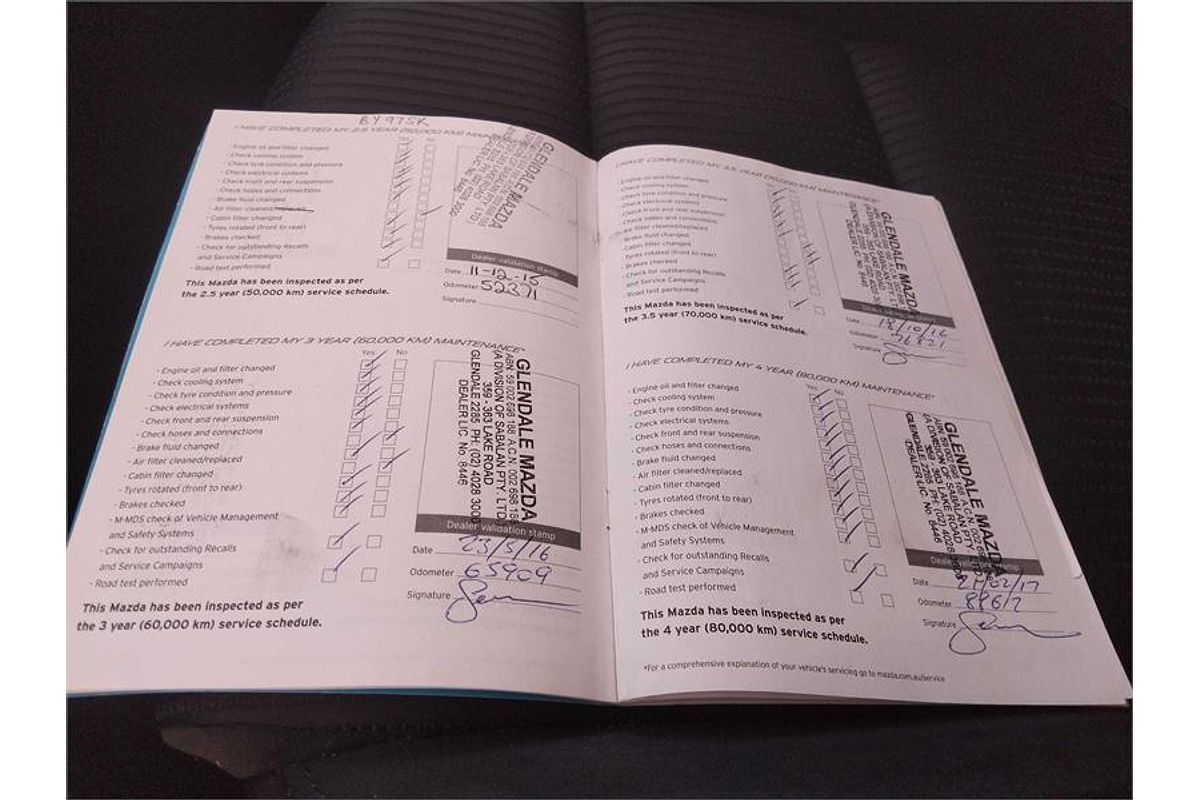 BY97SK
I HAVE COMPLETED MY 2.5 YEAR (50,000 KM) MAINTENANCE*
Yes No
- Engine oil and filter changed
- Check cooling system
- Check tyre condition and pressure
- Check electrical systems
- Check front and rear suspension
- Check hoses and connections
- Brake fluid changed
- Air filter cleaned/replaced
- Cabin filter changed
- Tyres rotated (front to rear)
- Brakes checked
- Check for outstanding Recalls
and Service Campaigns
- Road test performed
This Mazda has been inspected as per
the 2.5 year (50,000 km) service schedule.
GLENDALE MAZDA
Dealer validation stamp
Date 11-12-15
Odometer 52371
Signature
I HAVE COMPLETED MY 3 YEAR (60,000 KM) MAINTENANCE*
Yes No
- Engine oil and filter changed
- Check cooling system
- Check tyre condition and pressure
- Check electrical systems
- Check front and rear suspension
- Check hoses and connections
- Brake fluid changed
- Air filter cleaned/replaced
- Cabin filter changed
- Tyres rotated (front to rear)
- Brakes checked
- M-MDS check of Vehicle Management
and Safety Systems
- Check for outstanding Recalls
and Service Campaigns
- Road test performed
This Mazda has been inspected as per
the 3 year (60,000 km) service schedule.
GLENDALE MAZDA
ABN 69 002 698 188 A.C.N 002 698 188
(A DIVISION OF SABALAN PTY. LTD
359 - 363 LAKE ROAD
GLENDALE 2285 PH: (02) 4028 3000
DEALER LIC. No 8446
Dealer validation stamp
Date 23/5/16
Odometer 65909
Signature
I HAVE COMPLETED MY 3.5 YEAR (70,000 KM) MAINTENANCE*
- Engine oil and filter changed
- Check cooling system
- Check tyre condition and pressure
- Check electrical systems
- Check front and rear suspension
- Check hoses and connections
- Air filter cleaned/replaced
- Brake fluid changed
- Cabin filter changed
- Tyres rotated (front to rear)
- Brakes checked
- Check for outstanding Recalls
and Service Campaigns
- Road test performed
This Mazda has been inspected as per
the 3.5 year (70,000 km) service schedule.
GLENDALE MAZDA
Date 18/10/16
Odometer 76821
Signature
I HAVE COMPLETED MY 4 YEAR (80,000 KM) MAINTENANCE*
Yes No
- Engine oil and filter changed
- Check cooling system
- Check tyre condition and pressure
- Check electrical systems
- Check front and rear suspension
- Check hoses and connections
- Brake fluid changed
- Air filter cleaned/replaced
- Cabin filter changed
- Tyres rotated (front to rear)
- Brakes checked
- M-MDS check of Vehicle Management
and Safety Systems
- Check for outstanding Recalls
and Service Campaigns
- Road test performed
This Mazda has been inspected as per
the 4 year (80,000 km) service schedule.
GLENDALE MAZDA
Dealer validation stamp
Date
Odometer 88617
Signature
*For a comprehensive explanation of your vehicle's servicing go to mazda.com.au/service